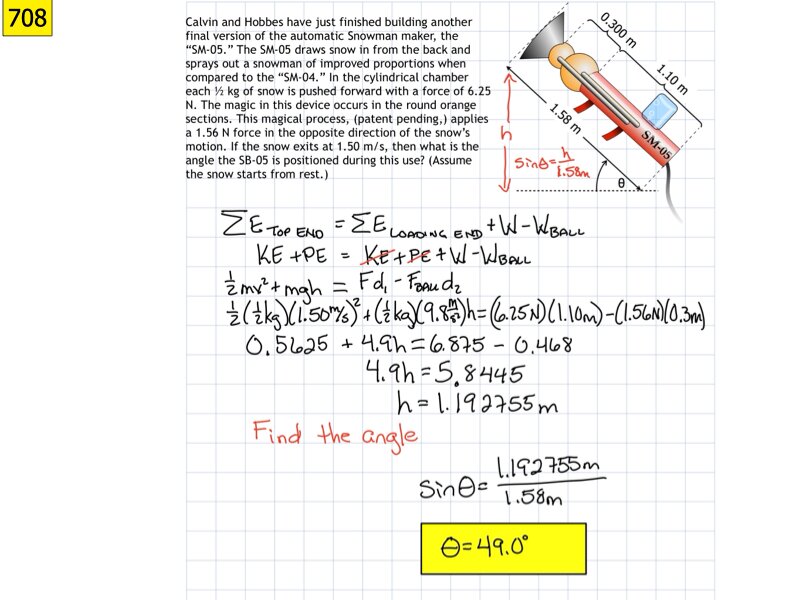 708
Calvin and Hobbes have just finished building another
final version of the automatic Snowman maker, the
“SM-05.” The SM-05 draws snow in from the back and
sprays out a snowman of improved proportions when
compared to the “SM-04.” In the cylindrical chamber
each ½ kg of snow is pushed forward with a force of 6.25
N. The magic in this device occurs in the round orange
sections. This magical process, (patent pending,) applies
a 1.56 N force in the opposite direction of the snow’s
motion. If the snow exits at 1.50 m/s, then what is the
angle the SB-05 is positioned during this use? (Assume
the snow starts from rest.)
0.300 m
1.10 m
1.58 m
SM-05
θ
h
sinθ=h/1.58m
ΣE TOP END = ΣE LOADING END + W - WBALL
KE + PE = KE + PE + W - WBALL
½mv² + mgh = Fd₁ - FBALL d₂
½(½kg)(1.50m/s)² + (½kg)(9.8m/s²)h = (6.25N)(1.10m) - (1.56N)(0.3m)
0.5625 + 4.9h = 6.875 - 0.468
4.9h = 5.8445
h = 1.192755m
Find the angle
sinθ = 1.192755m/1.58m
θ = 49.0°